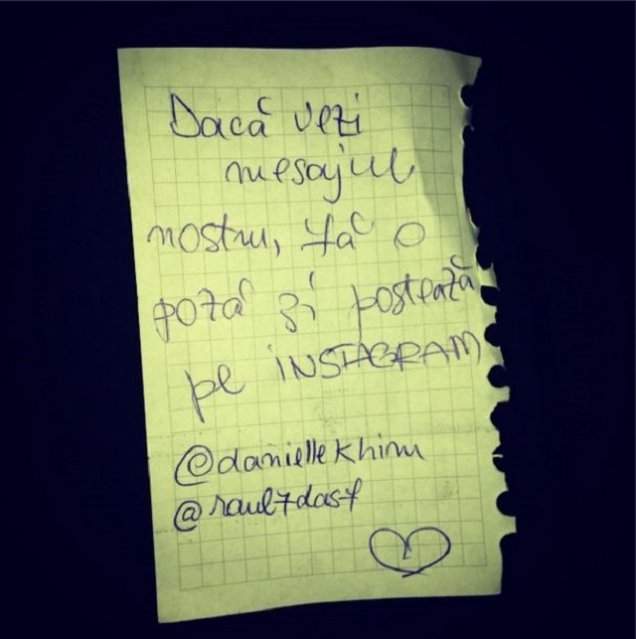 Dacă vezi
mesajul
nostru, fă o
poză și postează
pe INSTAGRAM
@daniellekhinu
@raul7dasf